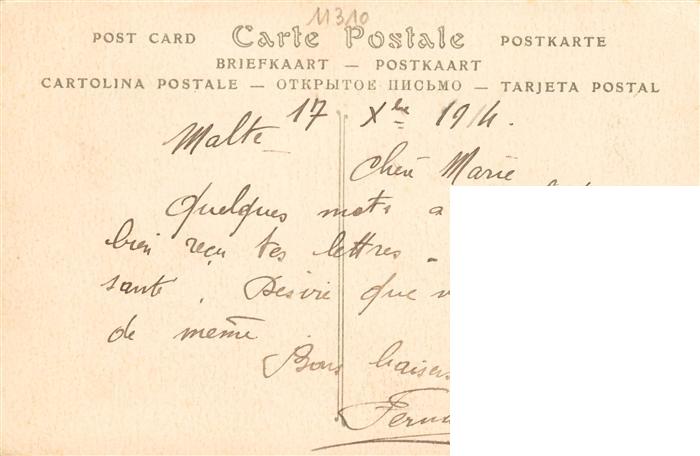 11310
POST CARD Carte Postale POSTKARTE
BRIEFKAART — POSTKAART
CARTOLINA POSTALE — ОТКРЫТОЕ ПИСЬМО — TARJETA POSTAL
Malte 17 Xbre 1914.
Marie
Quelques mots a
bien reçu tes lettres -
santé. Désire que
de même
Bons baisers